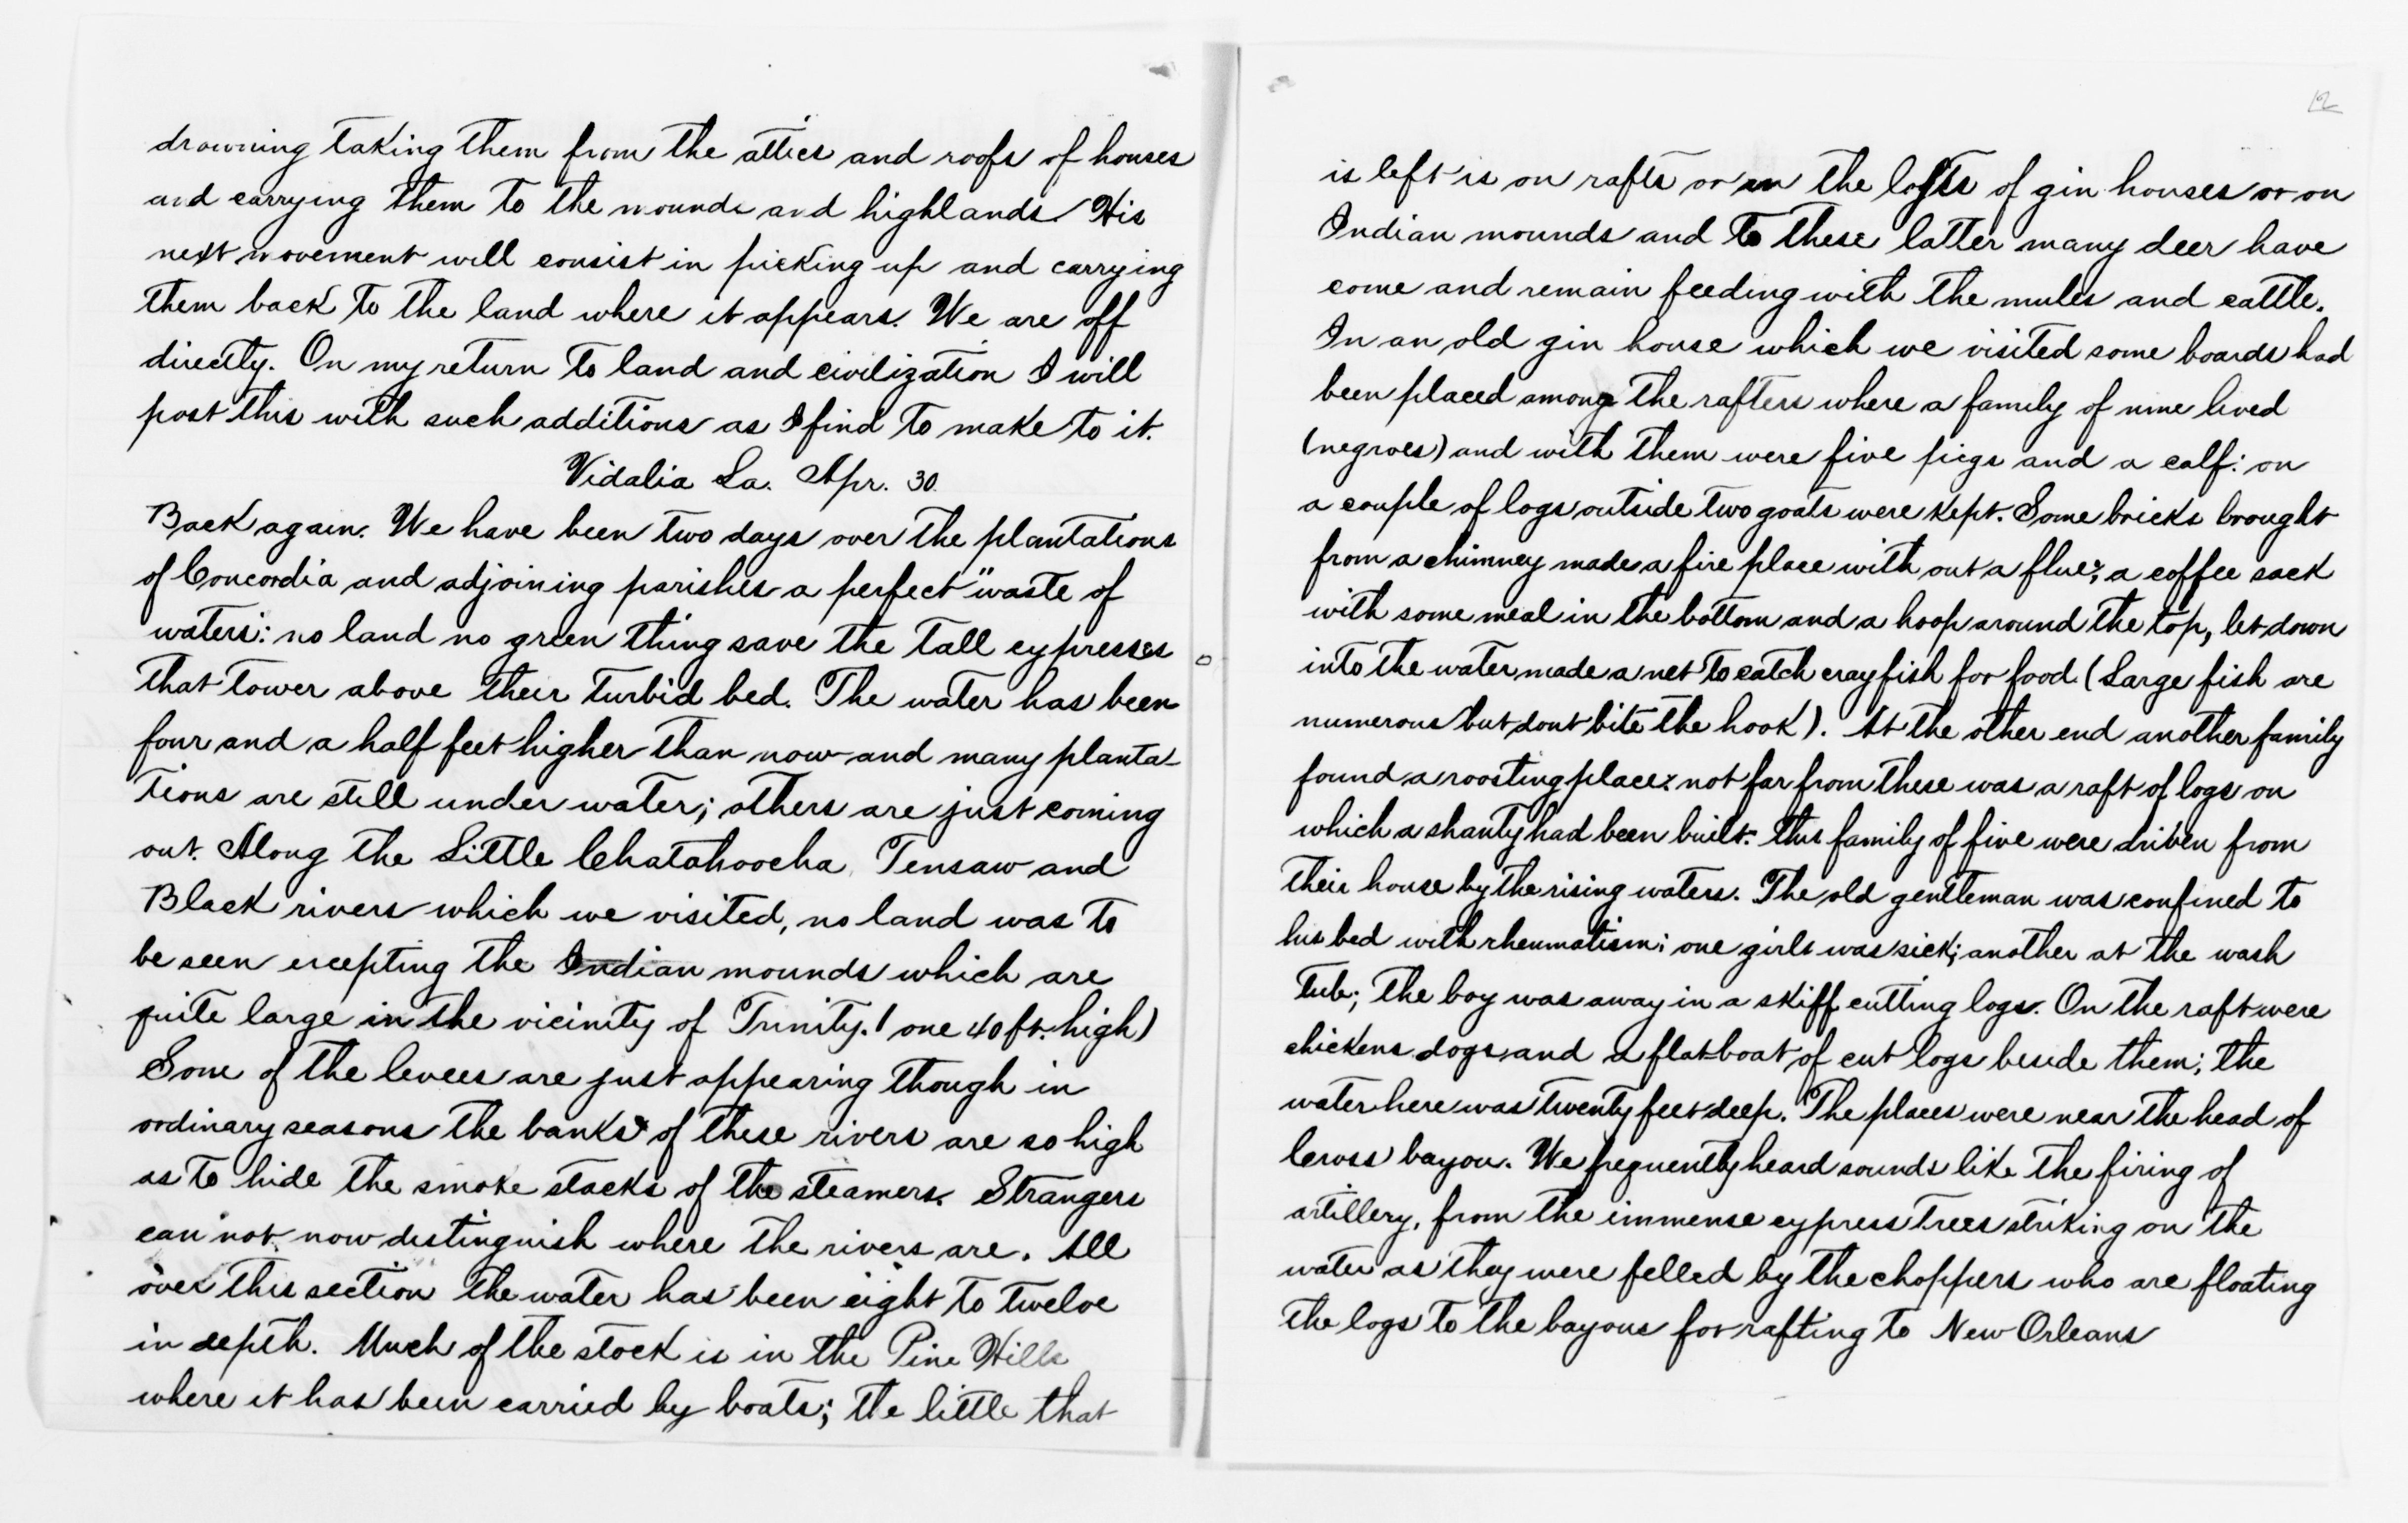 drowning taking them from the attics and roofs of houses
and carrying them to the mounds and highlands. His
next movement will consist in picking up and carrying
them back to the land where it appears. We are off
directly. On my return to land and civilization I will
post this with such additions as I find to make to it.
Vidalia La. Apr. 30.
Back again. We have been two days over the plantations
of Concordia and adjoining parishes a perfect "waste of
waters": no land no green thing save the tall cypresses
that tower above their turbid bed. The water has been
four and a half feet higher than now and many planta-
tions are still under water; others are just coming
out. Along the Little Chatahoocha, Tensaw and
Black rivers which we visited, no land was to
be seen excepting the Indian mounds which are
quite large in the vicinity of Trinity. (one 40 ft. high)
Some of the levees are just appearing though in
ordinary seasons the banks of these rivers are so high
as to hide the smoke stacks of the steamers. Strangers
can not now distinguish where the rivers are. All
over this section the water has been eight to twelve
in depth. Much of the stock is in the Pine Hills
where it has been carried by boats; the little that
12
is left is on rafts or in the lofts of gin houses or on
Indian mounds and to these latter many deer have
come and remain feeding with the mules and cattle.
In an old gin house which we visited some boards had
been placed among the rafters where a family of nine lived
(negroes) and with them were five pigs and a calf: on
a couple of logs outside two goats were kept. Some bricks brought
from a chimney made a fire place with out a flue; a coffee sack
with some meal in the bottom and a hoop around the top, let down
into the water made a net to catch crayfish for food (Large fish are
numerous but dont bite the hook). At the other end another family
found a roosting place: not far from these was a raft of logs on
which a shanty had been built. this family of five were driven from
their house by the rising waters. The old gentleman was confined to
his bed with rheumatism; one girl was sick; another at the wash
tub; the boy was away in a skiff cutting logs. On the raft were
chickens dogs and a flatboat of cut logs beside them; the
water here was twenty feet deep. The places were near the head of
Cross bayou. We frequently heard sounds like the firing of
artillery, from the immense cypress trees striking on the
water as they were felled by the choppers who are floating
the logs to the bayous for rafting to New Orleans